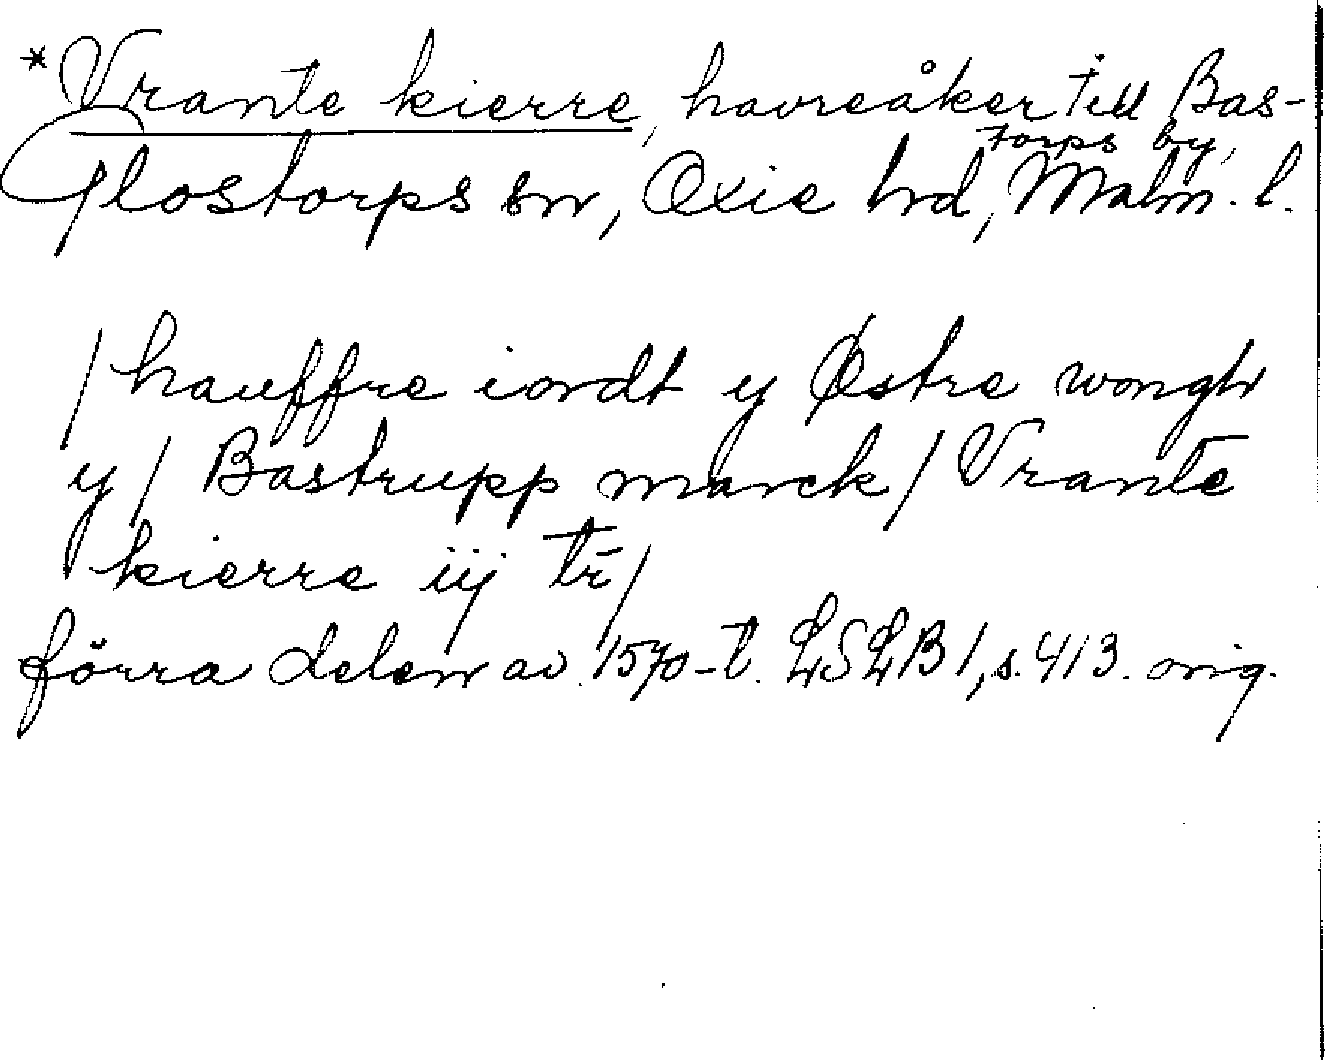 *Vrante kierre, havreåker till Bas-
torps by,
Glostorps sn, Oxie hd, Malm. l.
/hauffre iordt y Østre wongh
y/ Bastrupp marck/ Vrante
kierre iij tr̄/
förra delen av 1570-t. LSLB1, s. 413. orig.